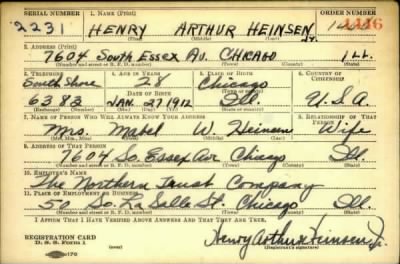 SERIAL NUMBER 1. NAME (Print) ORDER NUMBER
2231 HENRY ARTHUR HEINSEN Jr.
(First) (Middle) (Last)
2. ADDRESS (Print)
7604 SOUTH ESSEX AV. CHICAGO ILL.
(Number and street or R. F. D. number) (Town) (County) (State)
3. TELEPHONE 4. AGE IN YEARS 5. PLACE OF BIRTH 6. COUNTRY OF CITIZENSHIP
South Shore 28 Chicago
DATE OF BIRTH (Town or county)
6383 JAN. 27 1912 Ill. U.S.A.
(Exchange) (Number) (Mo.) (Day) (Yr.) (State or country)
7. NAME OF PERSON WHO WILL ALWAYS KNOW YOUR ADDRESS 8. RELATIONSHIP OF THAT PERSON
Mrs. Mabel W. Heinsen Wife
(Mr., Mrs., Miss) (First) (Middle) (Last)
9. ADDRESS OF THAT PERSON
7604 So. Essex Av. Chicago Ill.
(Number and street or R. F. D. number) (Town) (County) (State)
10. EMPLOYER'S NAME
The Northern Trust Company
11. PLACE OF EMPLOYMENT OR BUSINESS
50 So. La Salle St. Chicago Ill.
(Number and street or R. F. D. number) (Town) (County) (State)
I AFFIRM THAT I HAVE VERIFIED ABOVE ANSWERS AND THAT THEY ARE TRUE.
REGISTRATION CARD
D. S. S. Form 1
Henry Arthur Heinsen Jr.
(Registrant's signature)